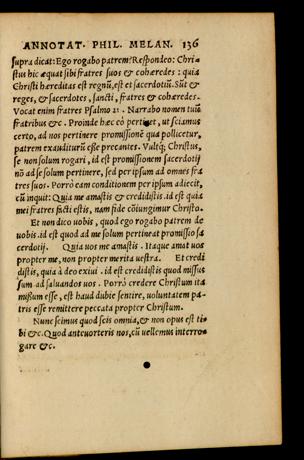 ANNOTAT. PHIL. MELAN. 136
supra dicat: Ego rogabo patrem? Respondeo: Chri-
stus hic æquat sibi fratres suos & cohæredes : quia
Christi hæreditas est regnũ, est et sacerdotiũ. Sũt &
reges, & sacerdotes, sancti, fratres & cohæredes.
Vocat enim fratres Psalmo 21. Narrabo nomen tuũ
fratribus &c. Proinde hæc eò pertinet, ut sciamus
certo, ad nos pertinere promissionẽ qua pollicetur,
patrem exauditurũ esse precantes. Vultq; Christus,
se non solum rogari, id est promissionem sacerdotij
nõ ad se solum pertinere, sed per ipsum ad omnes fra
tres suos. Porrò eam conditionem per ipsum adiecit,
cũ inquit: Quia me amastis & credidistis .id est quia
mei fratres facti estis, nam fide cõiungimur Christo.
Et non dico uobis , quod ego rogabo patrem de
uobis .id est quod ad me solum pertineat promissio sa
cerdotij. Quia uos me amastis . Itaque amat uos
propter me, non propter merita uestra. Et credi
distis, quia à deo exiui . id est credidistis quod missus
sum ad saluandos uos . Porrò credere Christum ita
missum esse , est haud dubie sentire, uoluntatem pa-
tris esse remittere peccata propter Christum.
Nunc scimus quod scis omnia, & non opus est ti-
bi &c. Quod anteuorteris nos, cũ uellemus interro-
gare &c.